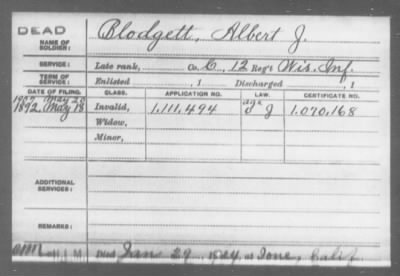 DEAD
NAME OF SOLDIER: Blodgett, Albert J.
SERVICE: Late rank, Co. C, 12 Reg't Wis. Inf.
TERM OF SERVICE: Enlisted , 1 Discharged , 1
DATE OF FILING. CLASS. APPLICATION NO. LAW. CERTIFICATE NO.
1907 May 20 age
1892 May 18 Invalid, 1,111,494 J 1,070,168
Widow,
Minor,
ADDITIONAL SERVICES:
REMARKS:
Died Jan 29 1924, at Ione, Calif.